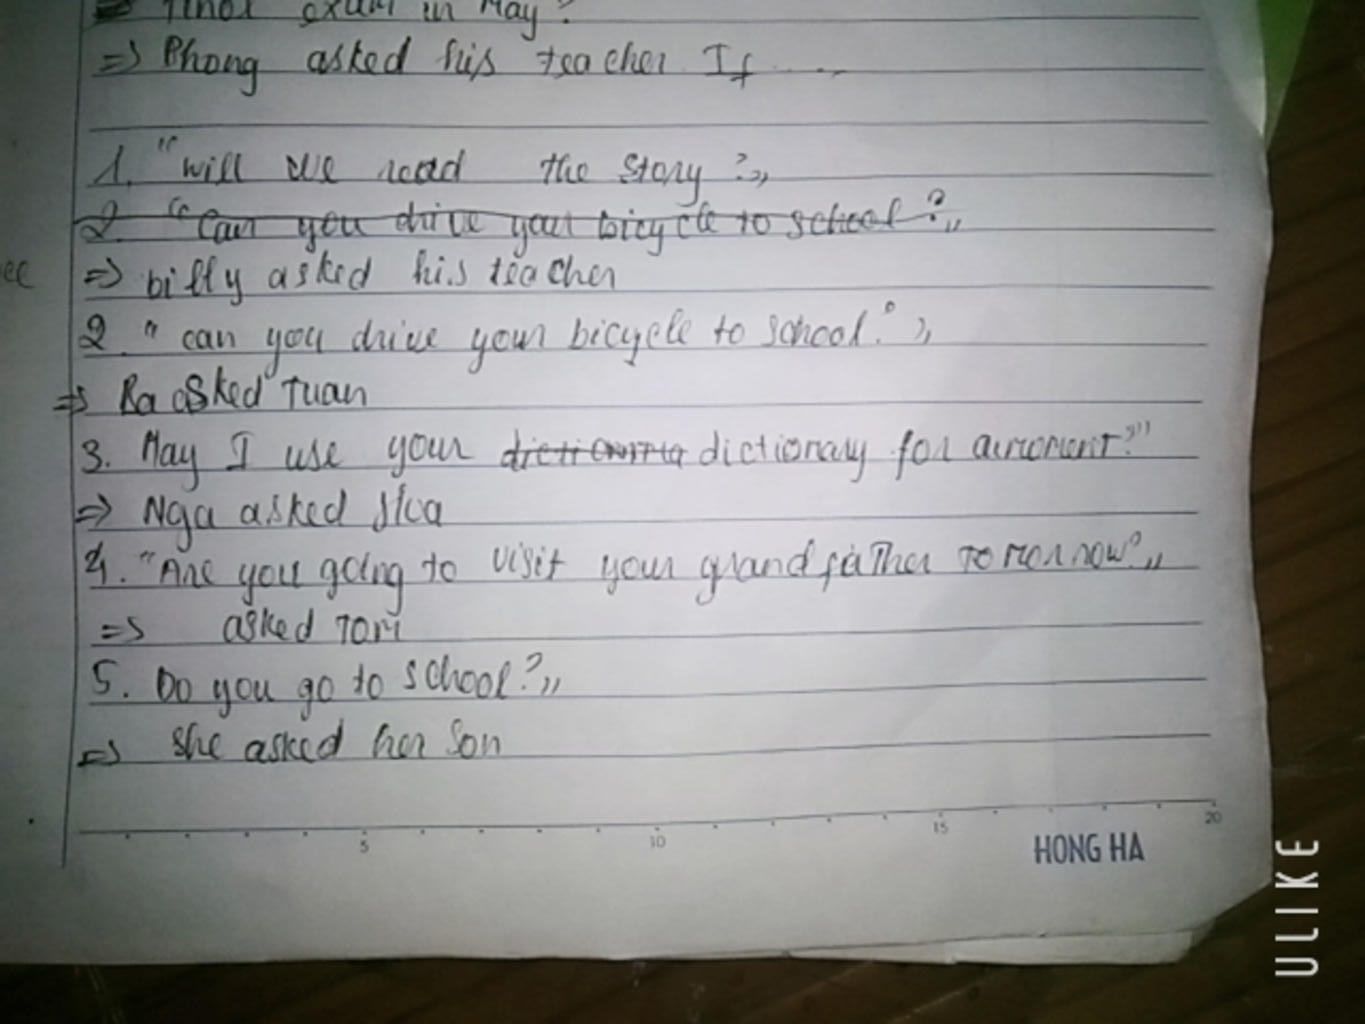 final exam in May?
=> Phong asked his teacher If ....
1. "will we read the story?"
2. "Can you drive your bicycle to school?"
=> billy asked his teacher
2. "can you drive your bicycle to school?"
=> Ba asked Tuan
3. May I use your dictionary for a moment?"
=> Nga asked Hoa
4. "Are you going to visit your grandfather tomorrow?"
=> asked Tom
5. Do you go to school?"
=> she asked her son
5 10 15 20
HONG HA
ULIKE